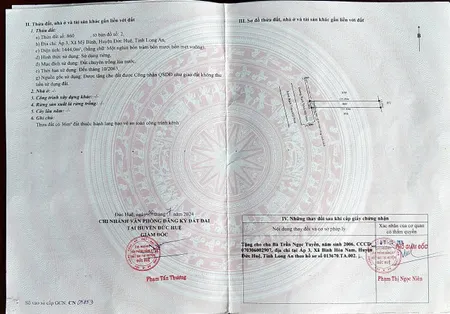 II. Thửa đất, nhà ở và tài sản khác gắn liền với đất
1. Thửa đất:
a) Thửa đất số: 860 , tờ bản đồ số: 2,
b) Địa chỉ: Ấp 3, Xã Mỹ Bình, Huyện Đức Huệ, Tỉnh Long An,
c) Diện tích: 1444,0m², (bằng chữ: Một nghìn bốn trăm bốn mươi bốn mét vuông),
d) Hình thức sử dụng: Sử dụng riêng,
đ) Mục đích sử dụng: Đất chuyên trồng lúa nước,
e) Thời hạn sử dụng: Đến tháng 10/2063
g) Nguồn gốc sử dụng: Được tặng cho đất được Công nhận QSDĐ như giao đất không thu
tiền sử dụng đất.
2. Nhà ở: -/-
3. Công trình xây dựng khác: -/-
4. Rừng sản xuất là rừng trồng: -/-
5. Cây lâu năm: -/-
6. Ghi chú:
Thửa đất có đất thuộc hành lang bảo vệ an toàn công trình kênh
Đức Huệ, ngày tháng năm 2024
CHI NHÁNH VĂN PHÒNG ĐĂNG KÝ ĐẤT ĐAI
TẠI HUYỆN ĐỨC HUỆ
GIÁM ĐỐC
Phạm Tấn Thương
Số vào sổ cấp GCN: CN
III. Sơ đồ thửa đất, nhà ở và tài sản khác gắn liền với đất
IV. Những thay đổi sau khi cấp giấy chứng nhận
Nội dung thay đổi và cơ sở pháp lý
Xác nhận của cơ quan
có thẩm quyền
Tặng cho cho Bà Trần Ngọc Tuyền, năm sinh 2006, CCCD:
070306002907, địa chỉ tại Ấp 3, Xã Bình Hòa Nam, Huyện
Đức Huệ, Tỉnh Long An theo hồ sơ số 013670.TA.002.
PHÓ GIÁM ĐỐC
Phạm Thị Ngọc Niên